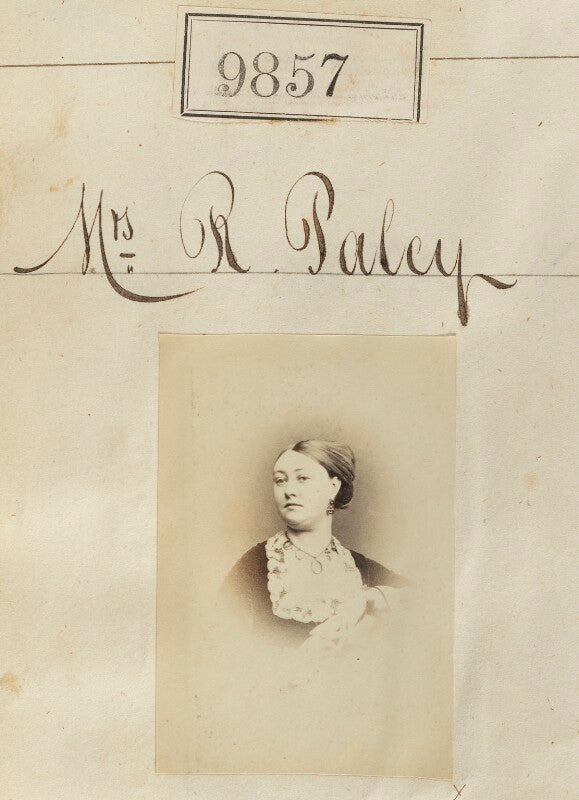 9857
Mrs R. Paley
x